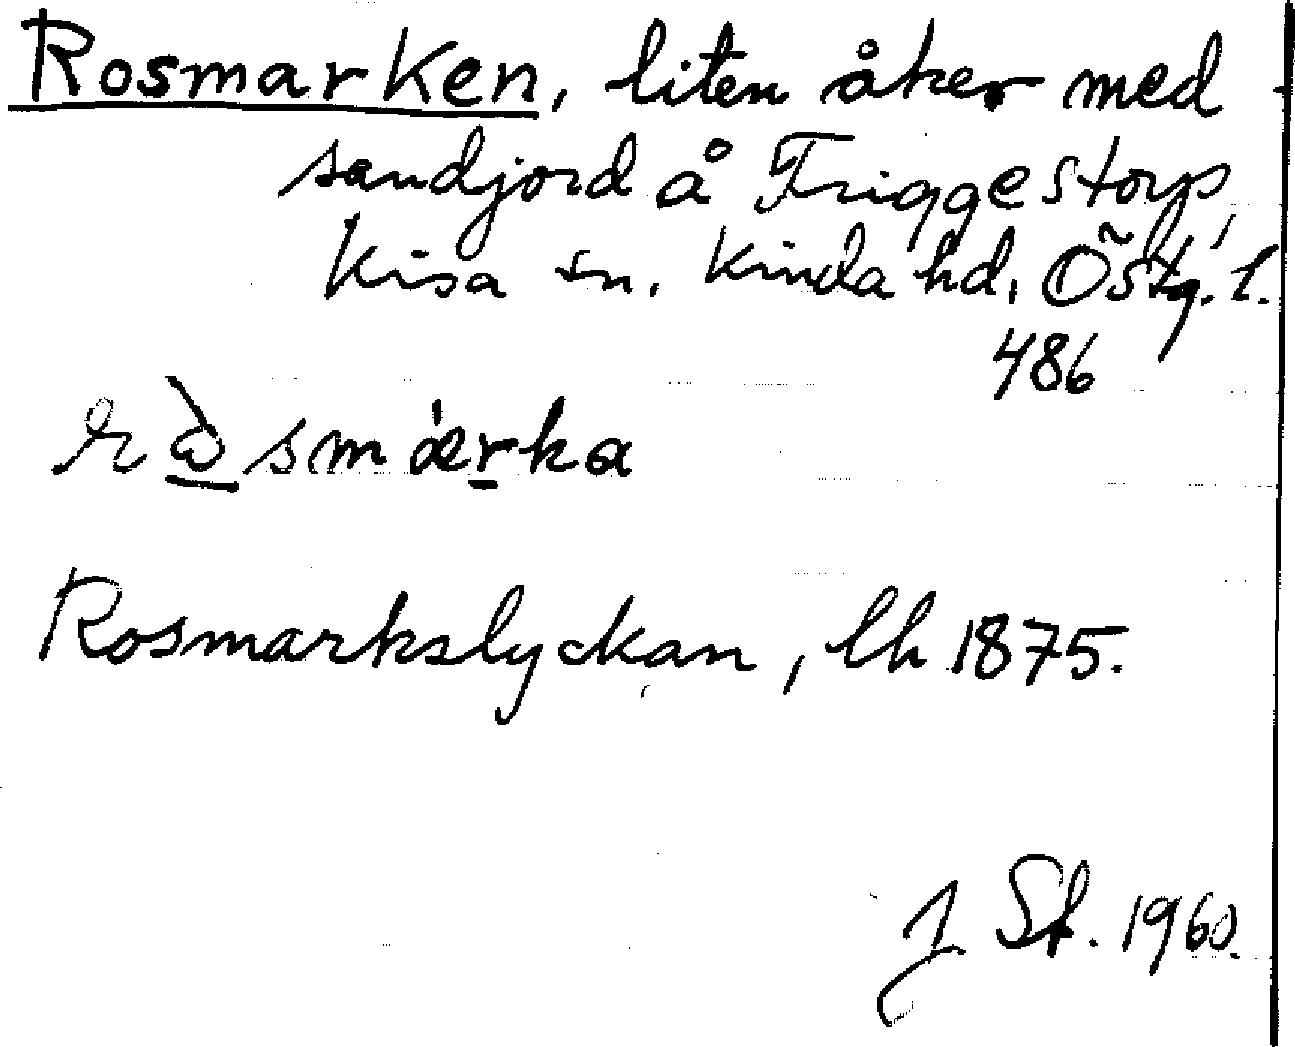 Rosmarken, liten åker med
sandjord å Friggestorp,
Kisa sn. Kinda hd, Östg. l.
486
Rosmarkslyckan, lh 1875.
J St. 1960.